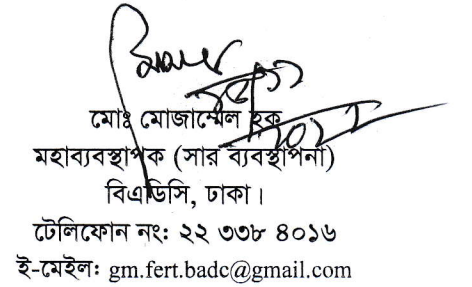 মোঃ মোজাম্মেল হক
মহাব্যবস্থাপক (সার ব্যবস্থাপনা)
বিএডিসি, ঢাকা।
টেলিফোন নং: ২২ ৩৩৮ ৪০১৬
ই-মেইল: gm.fert.badc@gmail.com